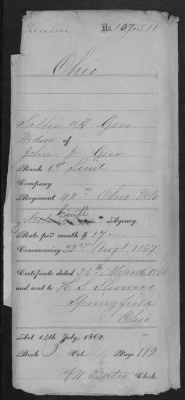 No. 107.511
Ohio
Sallie A. Geer
Widow of
John J. Geer
Rank 1st Lieut
Company
Regiment 48th Ohio Vols
Agency.
Rate per month $ 17
Commencing 23rd Augt 1867
Certificate dated 26th March 1868
and sent to H S Showers
Springfield
Ohio
Act 14th July, 1862.
Book Vol. Page 112
Clerk.